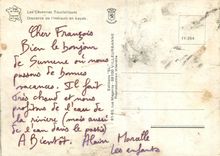 Les Cévennes Touristiques
Descente de l'Hérault en kayak
Cher François
Bien le bonjour
de Sumene où nous
passons de bonnes
vacances. Il fait
très chaud et nous
profitons de l'eau de
la rivière (mais aussi
de l'eau dans le pastis)
A Bientôt. Alain
les enfants